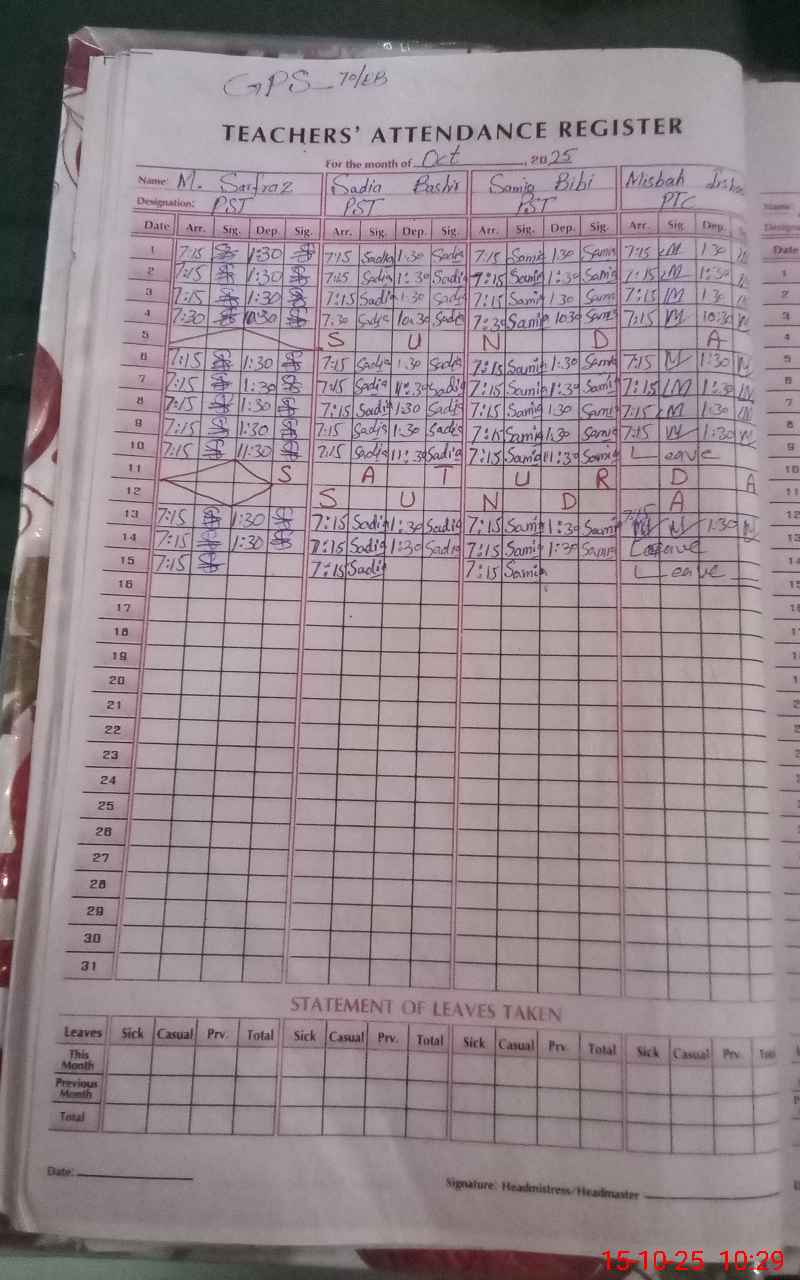 GPS_ 70/EB
TEACHERS' ATTENDANCE REGISTER
For the month of Oct, 2025
Name: M. Sarfraz Sadia Bashir Samia Bibi Misbah
Designation: PST PST PST PTC
Date Arr. Sig. Dep. Sig. Arr. Sig. Dep. Sig. Arr. Sig. Dep. Sig. Arr. Sig. Dep.
1 7:15 1:30 7:15 Sadia 1:30 Sadia 7:15 Samia 1:30 Samia 7:15 M 1:30
2 7:15 1:30 7:15 Sadia 1:30 Sadia 7:15 Samia 1:30 Samia 7:15 M 1:30
3 7:15 1:30 7:15 Sadia 1:30 Sadia 7:15 Samia 1:30 Samia 7:15 M 1:30
4 7:30 10:30 7:30 Sadia 10:30 Sadia 7:30 Samia 10:30 Samia 7:15 M 10:30
5 S U N D A
6 7:15 1:30 7:15 Sadia 1:30 Sadia 7:15 Samia 1:30 Samia 7:15 M 1:30 M
7 7:15 1:30 7:15 Sadia 1:30 Sadia 7:15 Samia 1:30 Samia 7:15 M 1:30 M
8 7:15 1:30 7:15 Sadia 1:30 Sadia 7:15 Samia 1:30 Samia 7:15 M 1:30 M
9 7:15 1:30 7:15 Sadia 1:30 Sadia 7:15 Samia 1:30 Samia 7:15 M 1:30 M
10 7:15 11:30 7:15 Sadia 11:30 Sadia 7:15 Samia 11:30 Samia Leave
11 S A T U R D A
12 S U N D A
13 7:15 1:30 7:15 Sadia 1:30 Sadia 7:15 Samia 1:30 Samia 7:15 M 1:30 M
14 7:15 1:30 7:15 Sadia 1:30 Sadia 7:15 Samia 1:30 Samia Leave
15 7:15 7:15 Sadia 7:15 Samia Leave
16
17
18
19
20
21
22
23
24
25
26
27
28
29
30
31
STATEMENT OF LEAVES TAKEN
Leaves Sick Casual Prv. Total Sick Casual Prv. Total Sick Casual Prv. Total Sick Casual Prv.
This Month
Previous Month
Total
Date:
Signature: Headmistress/Headmaster
15-10-25 10:29